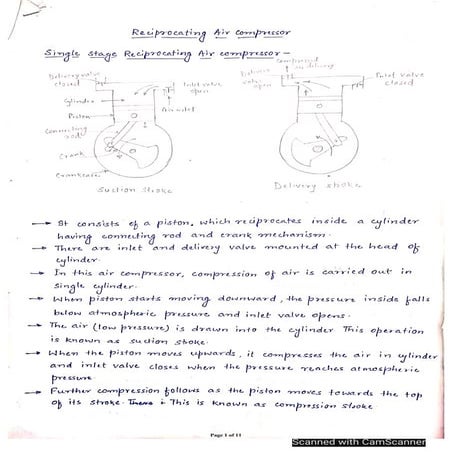 Reciprocating Air compressor
Single stage Reciprocating Air compressor -
Delivery valve closed
Inlet valve open
Cylinder
Piston
Air inlet
Connecting rod
Crank
Crankcase
Suction stroke
Compressed air delivery
Delivery valve open
Inlet valve closed
Delivery stroke
→ It consists of a piston, which reciprocates inside a cylinder
having connecting rod and crank mechanism.
→ There are inlet and delivery valve mounted at the head of
cylinder.
→ In this air compressor, compression of air is carried out in
single cylinder.
→ When piston starts moving downward, the pressure inside falls
below atmospheric pressure and inlet valve opens.
→ The air (low pressure) is drawn into the cylinder This operation
is known as suction stroke.
→ When the piston moves upwards, it compresses the air in cylinder
and inlet valve closes when the pressure reaches atmospheric
pressure
→ Further compression follows as the piston moves towards the top
of its stroke. This is known as compression stroke
Page 1 of 11
Scanned with CamScanner